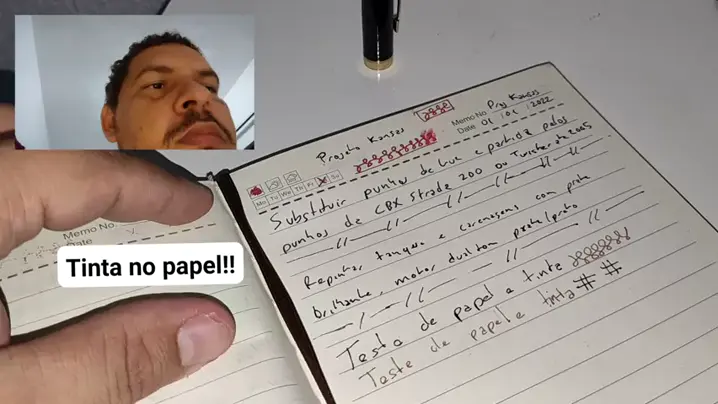 Projeto Kansas
Memo No. Proj Kansas
Date 01 / 01 / 2022
Mo Tu We Th Fr Su
Substituir punhos de luz e partida pelos
punhos de CBX Strada 200 ou Twister 2005
Repintar tanque e carenagens com preto
brilhante, motor dual tom prata/preto
Teste de papel e tinta
Teste de papel e tinta # #
Memo No.
Date
Tinta no papel!!